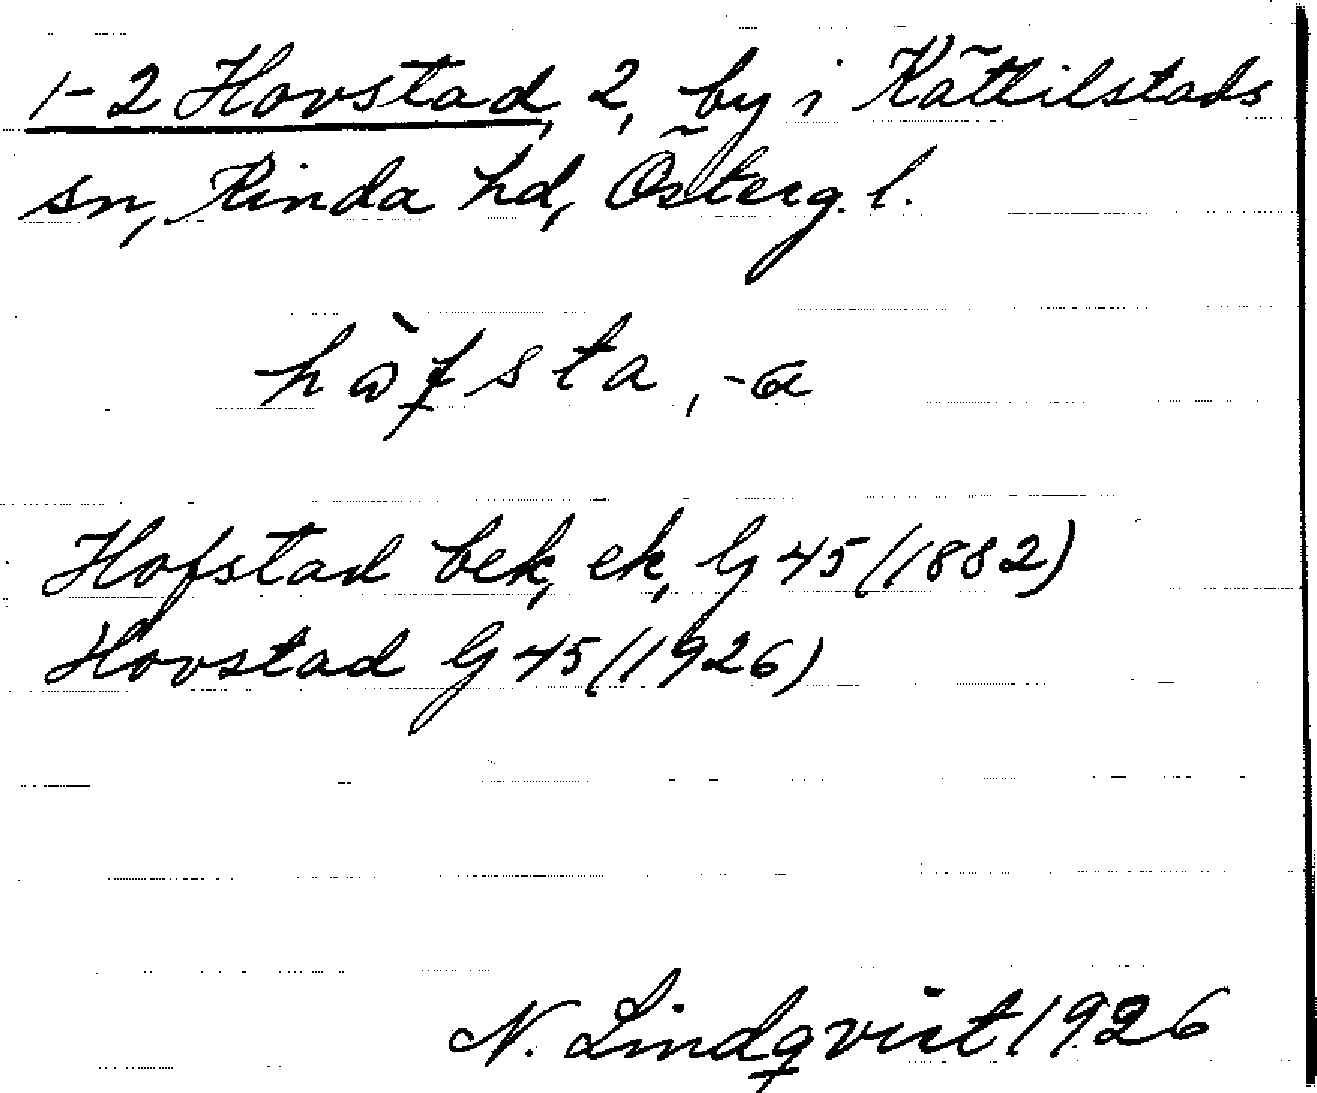 1-2 Hovstad, 2, by i Kättilstads
sn, Kinda hd, Österg. l.
sta, -a
Hofstad bek, ek, G 45 (1882)
Hovstad G 45 (1926)
N. Lindqvist 1926